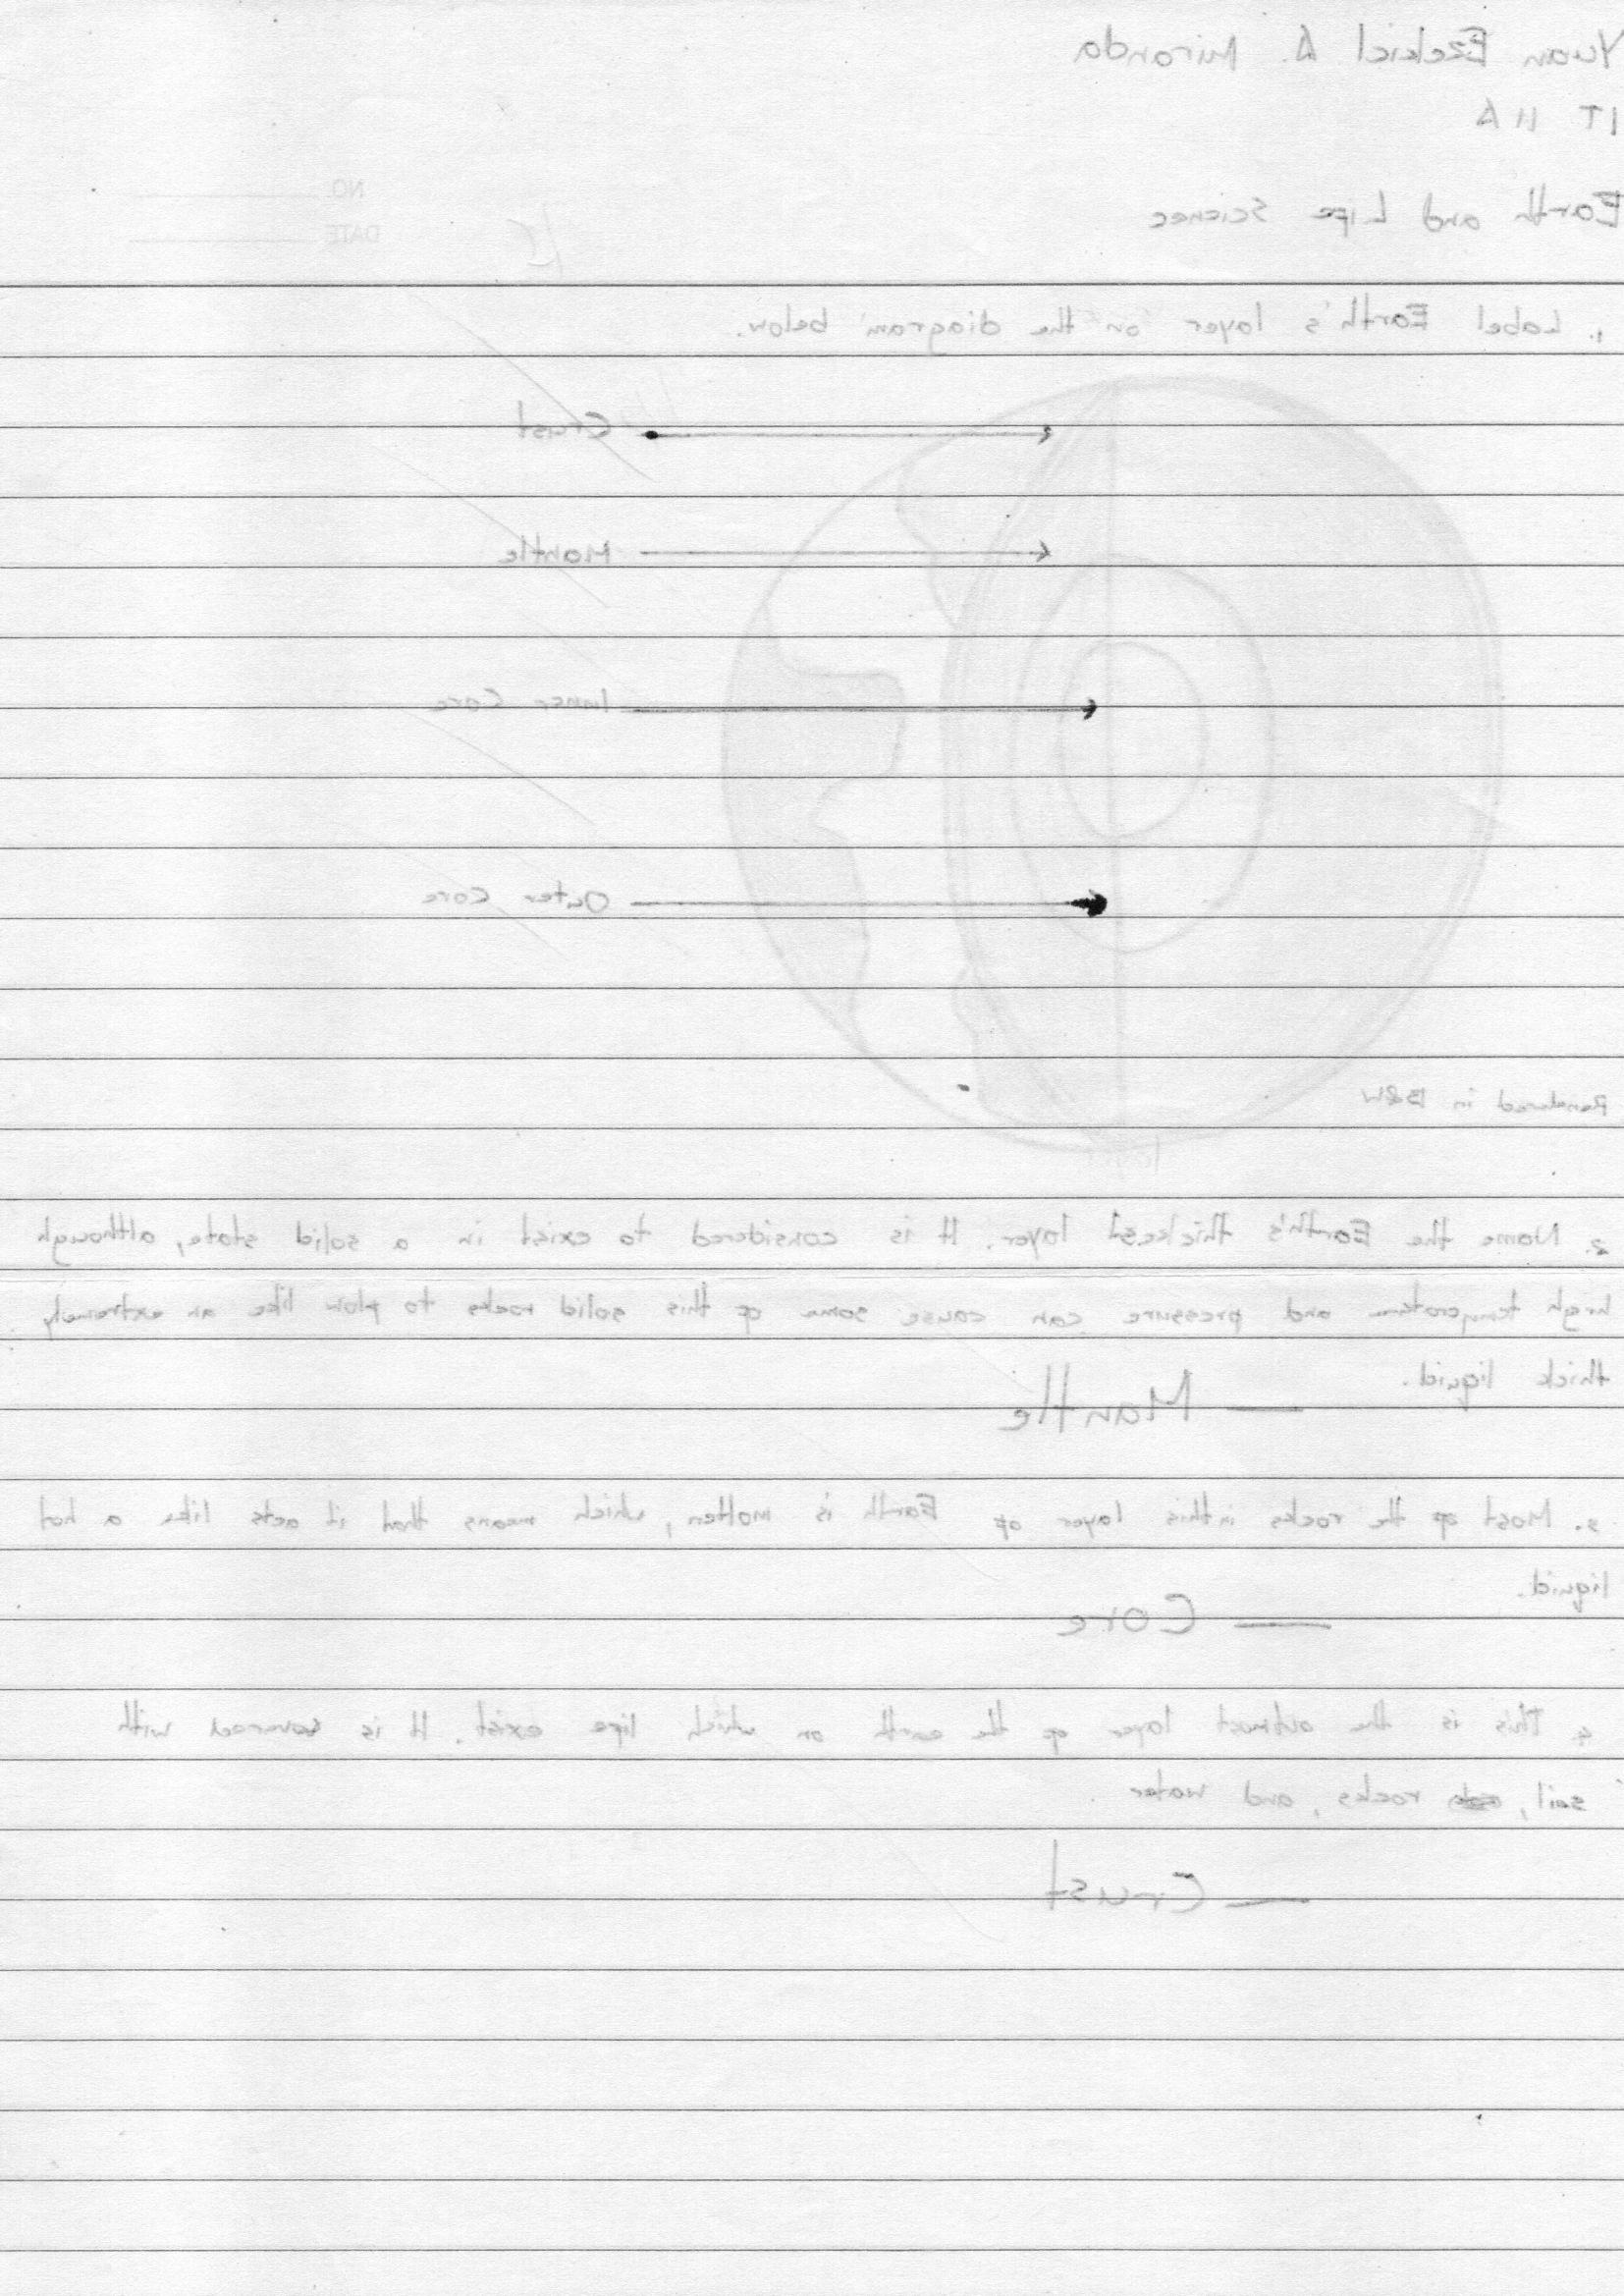 Yuan Ezekiel A. Miranda
IT 11A
Earth and Life Science
NO.
DATE
1. Label Earth's layer on the diagram below.
Crust
Mantle
Inner Core
Outer Core
Rendered in B&W
2. Name the Earth's thickest layer. It is considered to exist in a solid state, although
high temperature and pressure can cause some of this solid rocks to flow like an extremely
thick liquid.
— Mantle
3. Most of the rocks in this layer of Earth is molten, which means that it acts like a hot
liquid.
— Core
4. This is the outmost layer of the earth on which life exist. It is covered with
soil, rocks, and water
— Crust